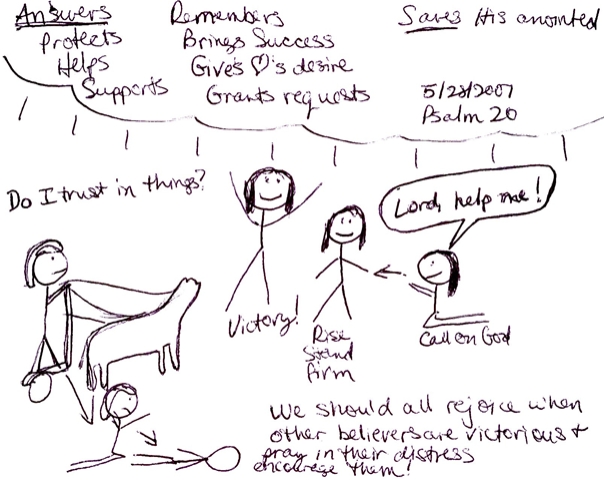 Answers
Protects
Helps
Supports
Remembers
Brings Success
Gives ♡'s desire
Grants requests
Saves His anointed
5/28/2007
Psalm 20
Do I trust in things?
Lord, help me!
Victory!
Rise
Stand
firm
Call on God
We should all rejoice when
other believers are victorious +
pray in their distress
encourage them!